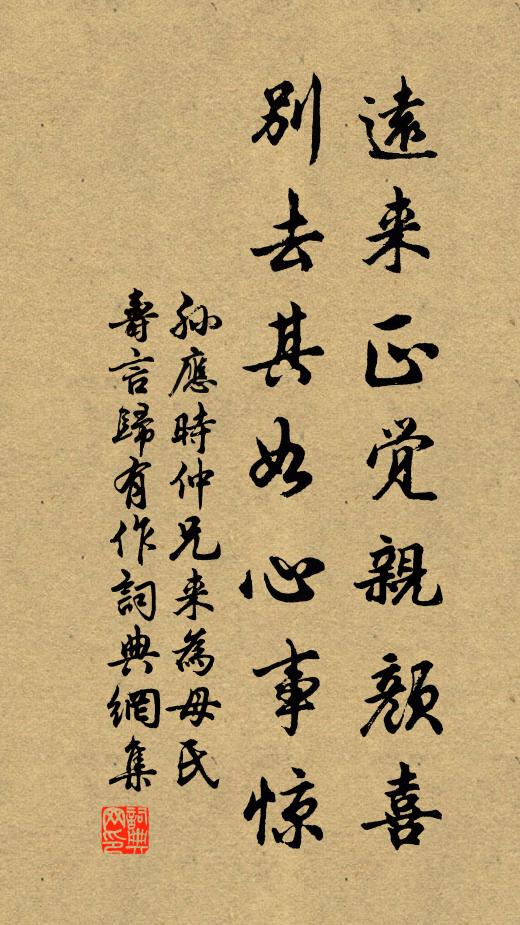 遠来正覺親顏喜
別去其如心事惊
孙應時仲兄来為母氏
壽言歸有作詞典網集
詞典网印